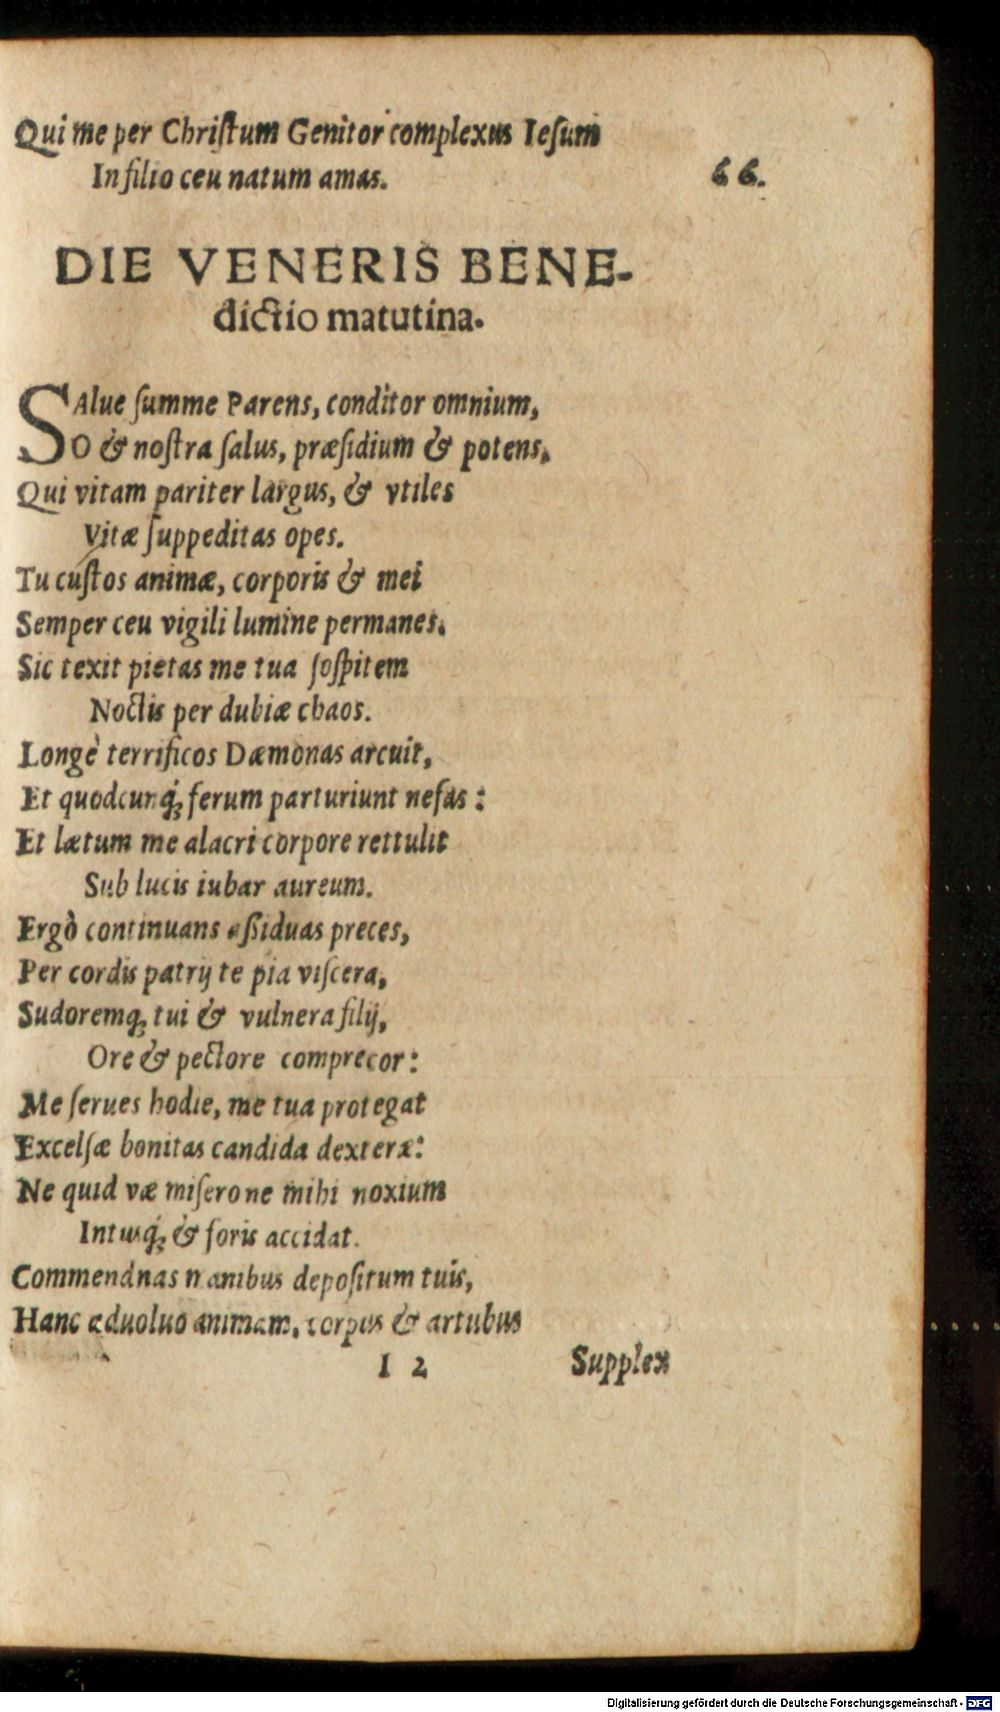 Qui me per Chriſtum Genitor complexus Ieſum
In filio ceu natum amas.
66.
DIE VENERIS BENE-
dictio matutina.
SAlue ſumme Parens, conditor omnium,
O & noſtra ſalus, præſidium & potens,
Qui vitam pariter largus, & vtiles
Vitæ ſuppeditas opes.
Tu cuſtos animæ, corporis & mei
Semper ceu vigili lumine permanes.
Sic texit pietas me tua ſoſpitem
Noctis per dubiæ chaos.
Longè terrificos Dæmonas arcuit,
Et quodcunq́; ferum parturiunt nefas:
Et lætum me alacri corpore rettulit
Sub lucis iubar aureum.
Ergò continuans aſſiduas preces,
Per cordis patrij te pia viſcera,
Sudoremq; tui & vulnera filij,
Ore & pectore comprecor:
Me ſerues hodie, me tua protegat
Excelſæ bonitas candida dexteræ:
Ne quid væ miſero ne mihi noxium
Intusq́; & foris accidat.
Commendnas manibus depoſitum tuis,
Hanc aduoluo animam, corpus & artubus
I 2
Supplex
Digitalisierung gefördert durch die Deutsche Forschungsgemeinschaft - DFG